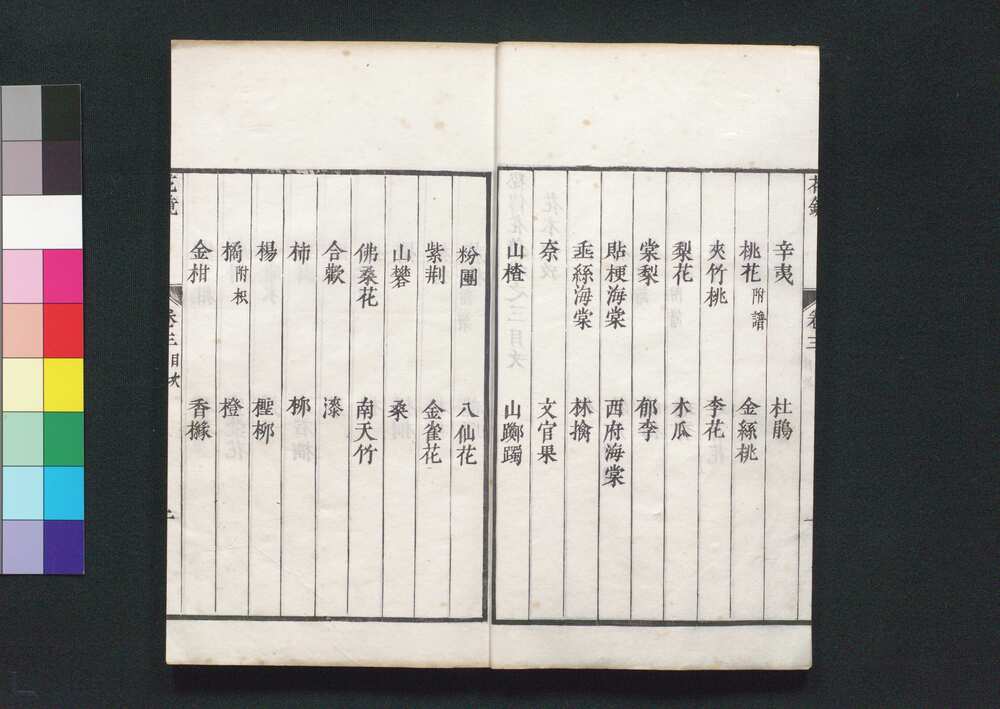 花鏡 卷三
辛夷 杜鵑
桃花附譜 金絲桃
夾竹桃 李花
梨花 木瓜
棠梨 郁李
貼梗海棠 西府海棠
垂絲海棠 林擒
奈 文官果
山楂 山躑躅
粉團 八仙花
紫荆 金雀花
山礬 桑
佛桑花 南天竹
合歡 漆
柿 柳
楊 檉柳
橘附枳 橙
金柑 香櫞
花鏡 卷三目次